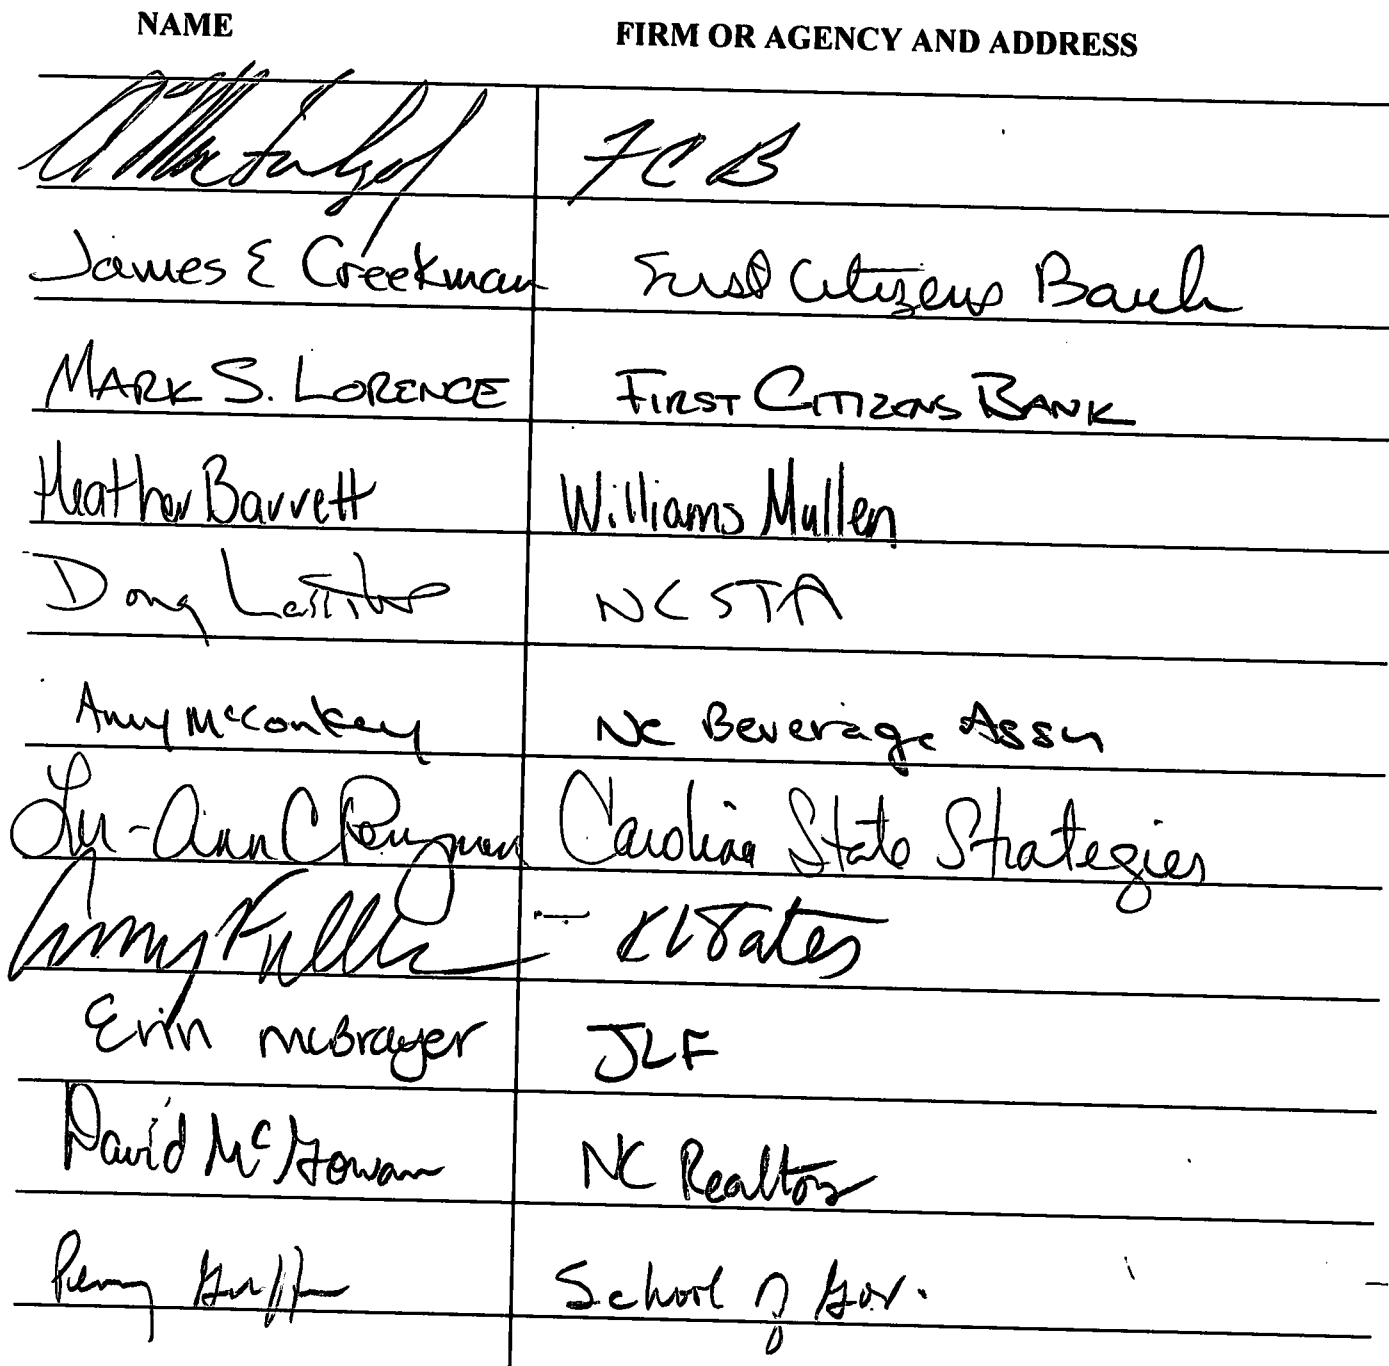 NAME FIRM OR AGENCY AND ADDRESS
FCB
James E Creekman First Citizens Bank
MARK S. LORENCE FIRST CITIZENS BANK
Heather Barrett Williams Mullen
Doug Lassiter NCSTA
Amy McConkey NC Beverage Assn
Lu-Ann C Carolina State Strategies
Fuller K&L Gates
Erin McBrayer JLF
David McGowan NC Realtors
School of Gov.